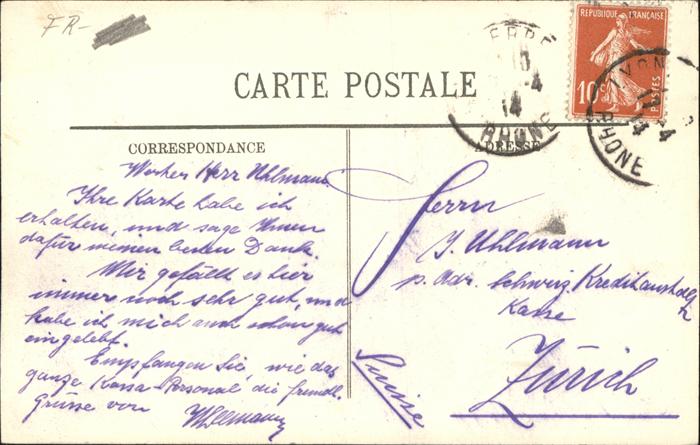 FR-
CARTE POSTALE
RÉPUBLIQUE FRANÇAISE
10c
POSTES
RHONE
14
RHONE
CORRESPONDANCE
ADRESSE
Herr Uhlmann
Ihre Karte habe ich
erhalten, und sage Ihnen
dafür meinen besten Dank.
Mir gefällt es hier
immer noch sehr gut, und
habe ich mich auch schon gut
eingelebt.
Empfangen Sie, wie das
ganze Kassa-Personal die freundl.
Grüsse von
Herrn
J. Uhlmann
p. Adr. Schweiz. Kreditanstalt
Kasse
Zürich
Suisse